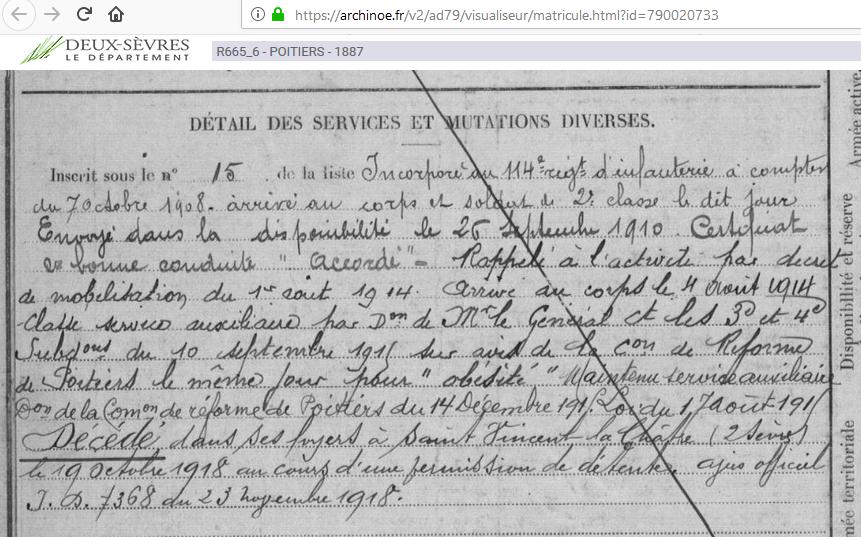 https://archinoe.fr/v2/ad79/visualiseur/matricule.html?id=790020733
DEUX-SÈVRES
LE DÉPARTEMENT
R665_6 - POITIERS - 1887
DÉTAIL DES SERVICES ET MUTATIONS DIVERSES.
Inscrit sous le n° 15 de la liste Incorporé au 114e régt d'infanterie à compter
du 7 Octobre 1908. arrivé au corps et soldat de 2e classe le dit jour
Envoyé dans la disponibilité le 26 Septembre 1910. Certificat
de bonne conduite "accordé" - Rappelé à l'activité par decret
de mobilisation du 1er aout 1914. Arrivé au corps le 4 aout 1914
Classé service auxiliaire par Don de Mr le Général Ct les 3e et 4e
Subdons du 10 septembre 191 sur avis de la Con de Réforme
de Poitiers le même jour pour "obésité" Maintenu service auxiliaire
Don de la Comon de réforme de Poitiers du 14 Décembre 191 Loi du 17 août 191
Décédé, dans ses foyers à Saint Vincent la Châtre (2 Sèvres)
le 19 Octobre 1918 au cours d'une permission de détente, officiel
7368 du 23 Novembre 1918.
Armée active
Disponibilité et réserve
mée territoriale